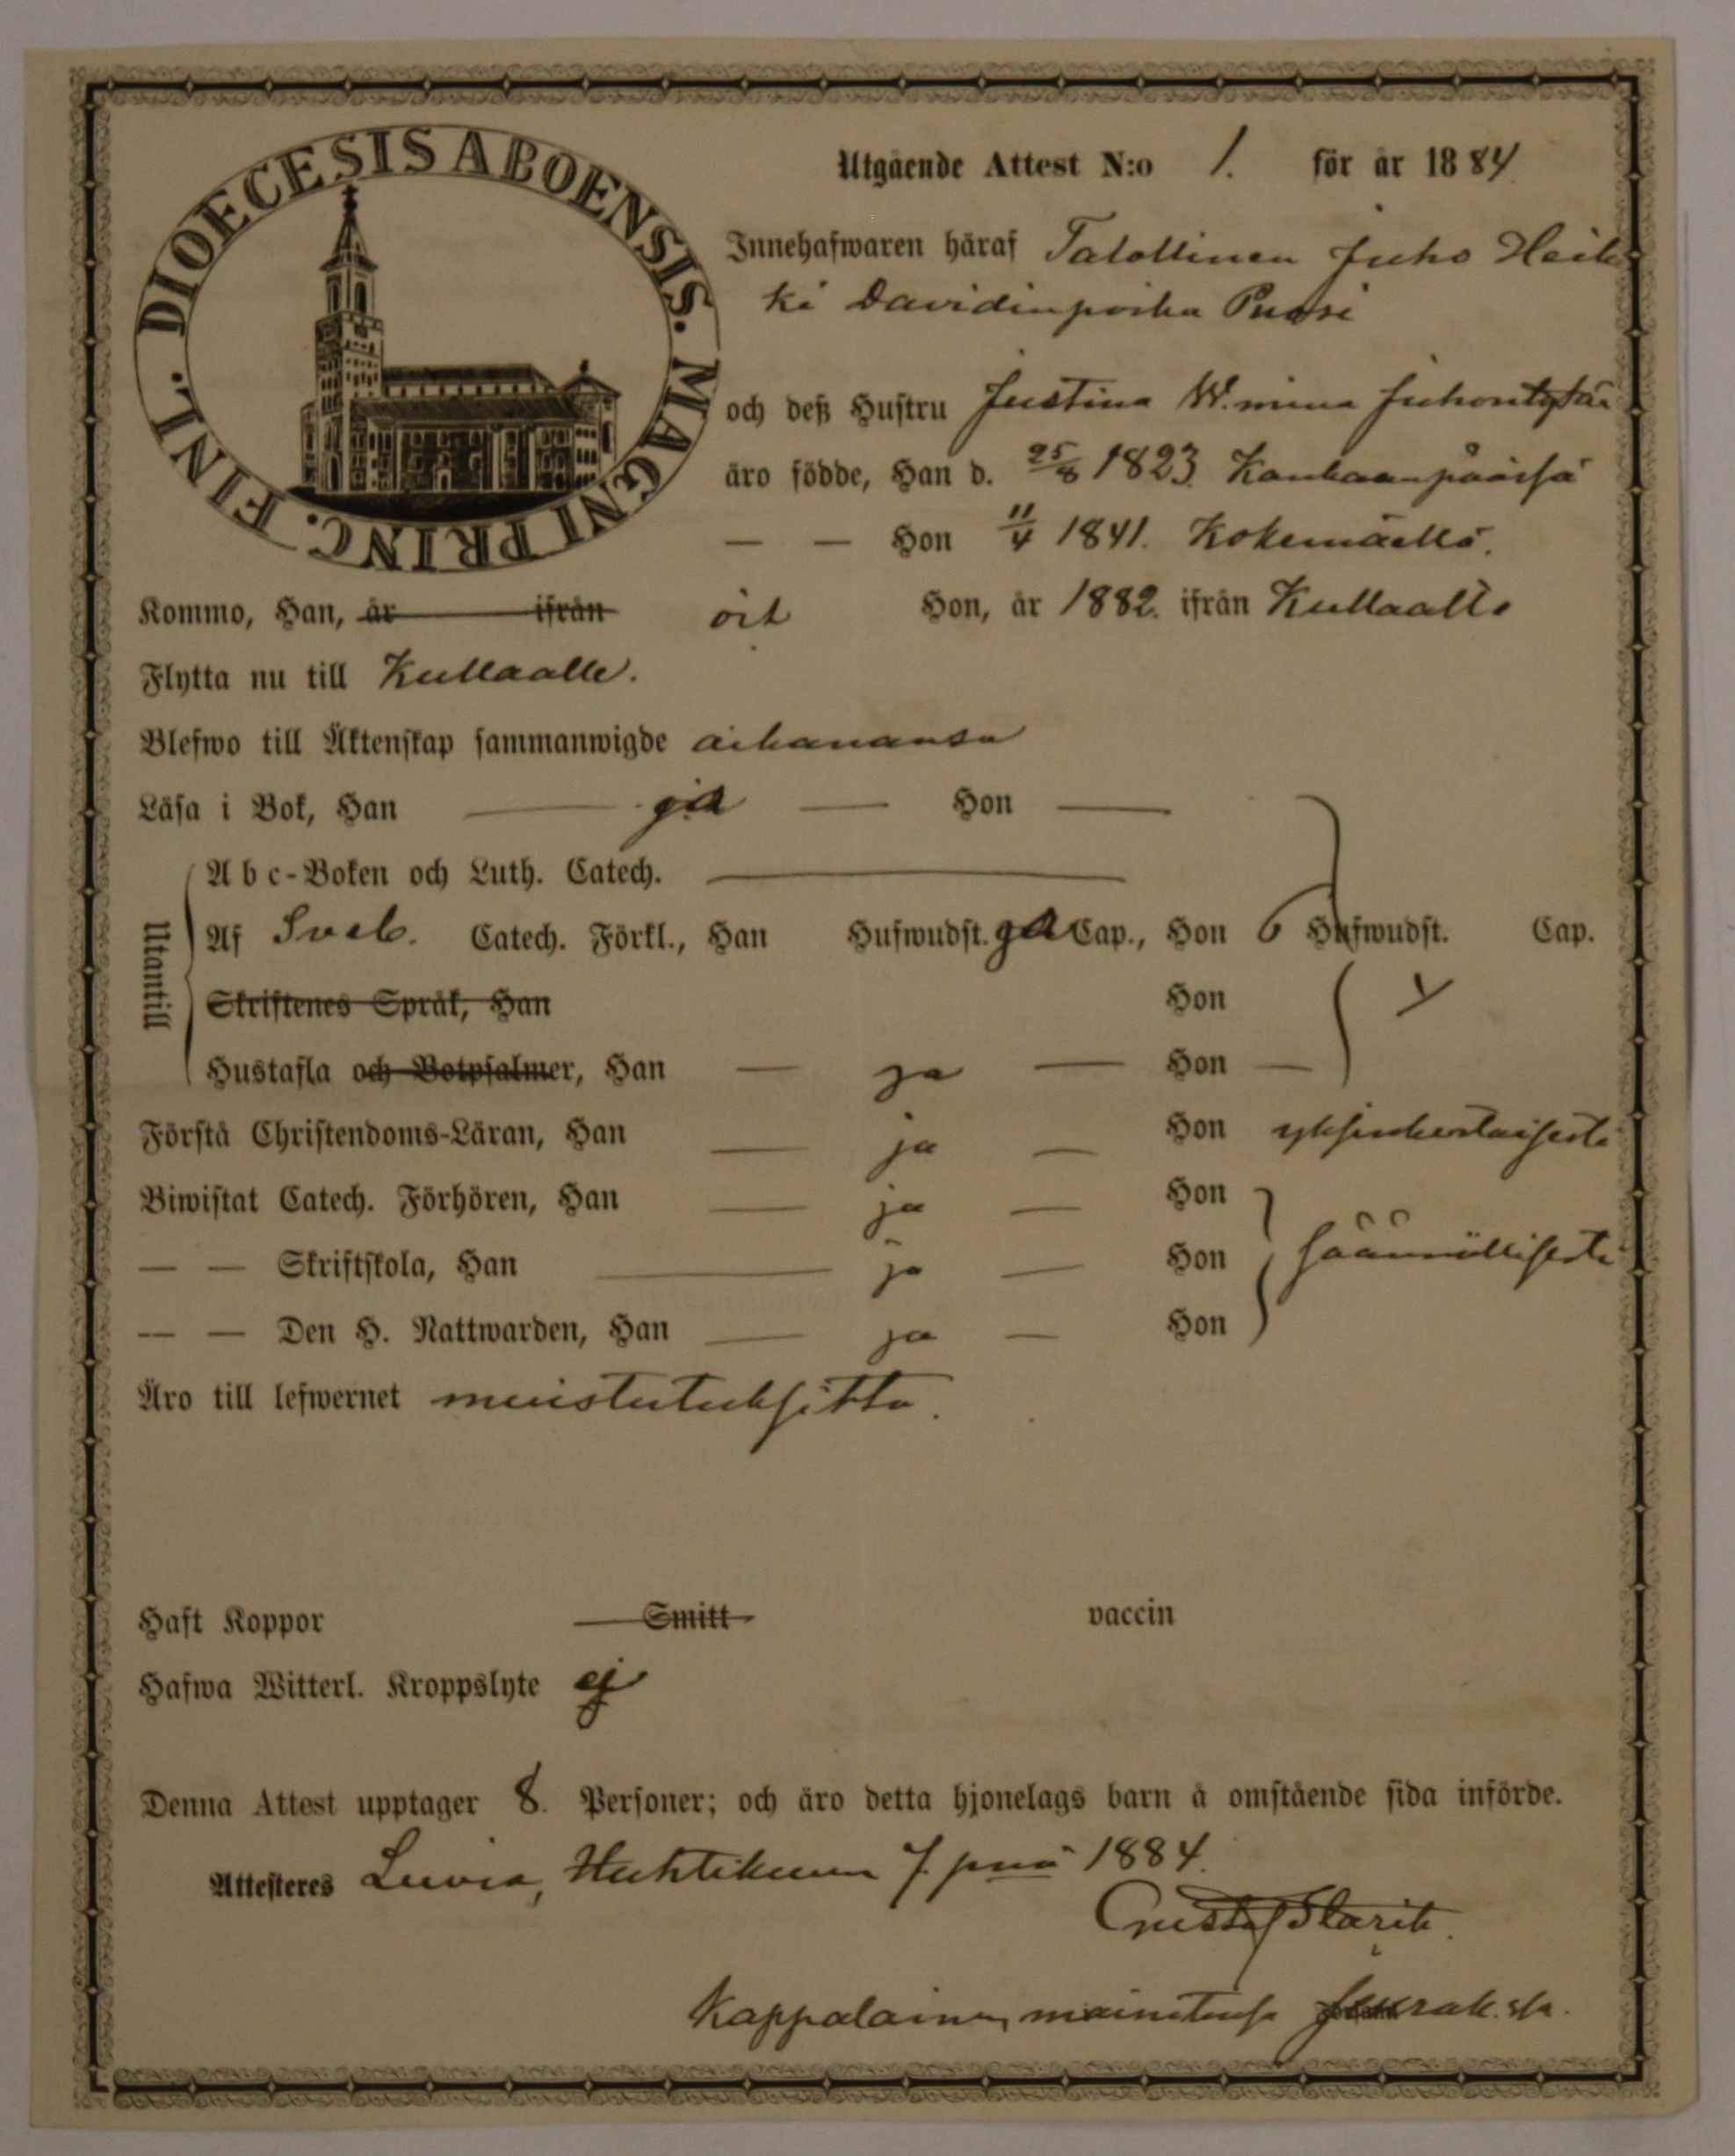 DIOECESIS ABOENSIS. MAGNI PRINC. FINL.
Utgående Attest N:o 1. för år 1884
Innehafwaren häraf Talollinen Juho Heik
ki Davidinpoika Puosi
och deß Hustru Justina W.mina Juhontytär
äro födde, Han d. 25/8 1823. Kankaanpäässä
— — Hon 11/4 1841. Kokemäellä.
Kommo, Han, år ifrån Hon, år 1882. ifrån Kullaalta
Flytta nu till Kullaalle.
Blefwo till Äktenskap sammanwigde aikanansa
Läsa i Bok, Han — gd — Hon —
Utantill
Abc-Boken och Luth. Catech. —
Af Sveb. Catech. Förkl., Han Hufwudst. gd Cap., Hon 6 Hufwudst. Cap.
Skriftenes Språk, Han Hon
Hustafla och Botpsalmer, Han — ja — Hon —
Förstå Christendoms-Läran, Han — ja — Hon yksinkertaisesti
Biwistat Catech. Förhören, Han — ja — Hon
— — Skriftskola, Han — ja — Hon säännöllisesti
— — Den H. Nattwarden, Han — ja — Hon
Äro till lefwernet muistutuksitta.
Haft Koppor Smitt vaccin
Hafwa Witterl. Kroppslyte ej
Denna Attest upptager 8. Personer; och äro detta hjonelags barn å omstående sida införde.
Attesteres Luvia, Huhtikuun 7. pnä 1884.
Gustaf
Kappalainen mainitussa seurak.ssa.